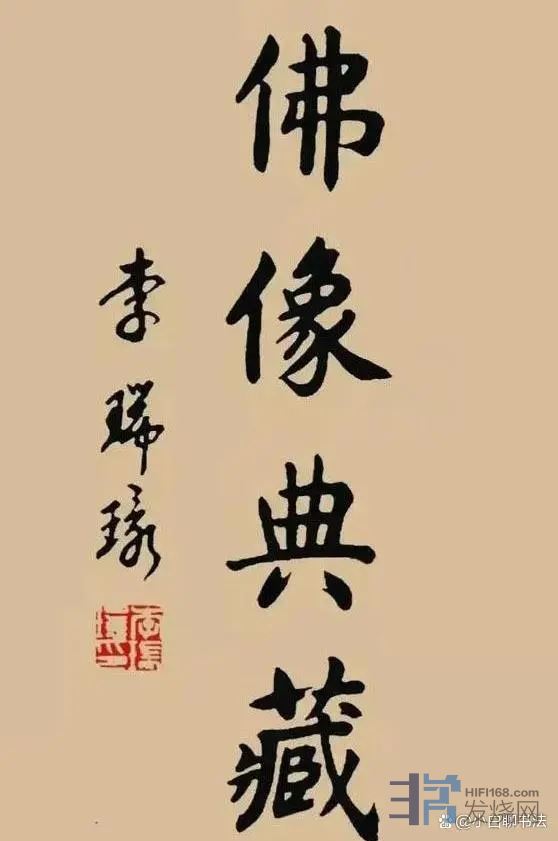 佛像典藏
李瑞環
HIFI168.com
发烧网
@小白聊书法